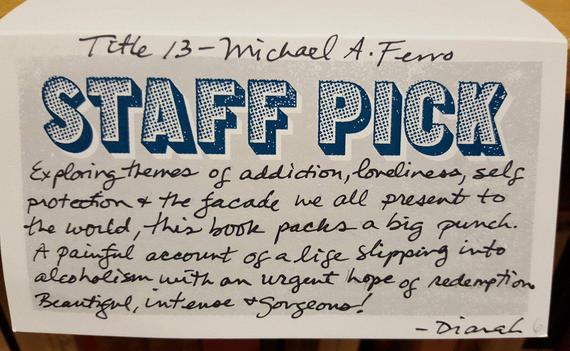 Title 13 - Michael A. Ferro
STAFF PICK
Exploring themes of addiction, loneliness, self
protection & the facade we all present to
the world, this book packs a big punch.
A painful account of a life slipping into
alcoholism with an urgent hope of redemption
Beautiful, intense & Gorgeous!
- Dianah